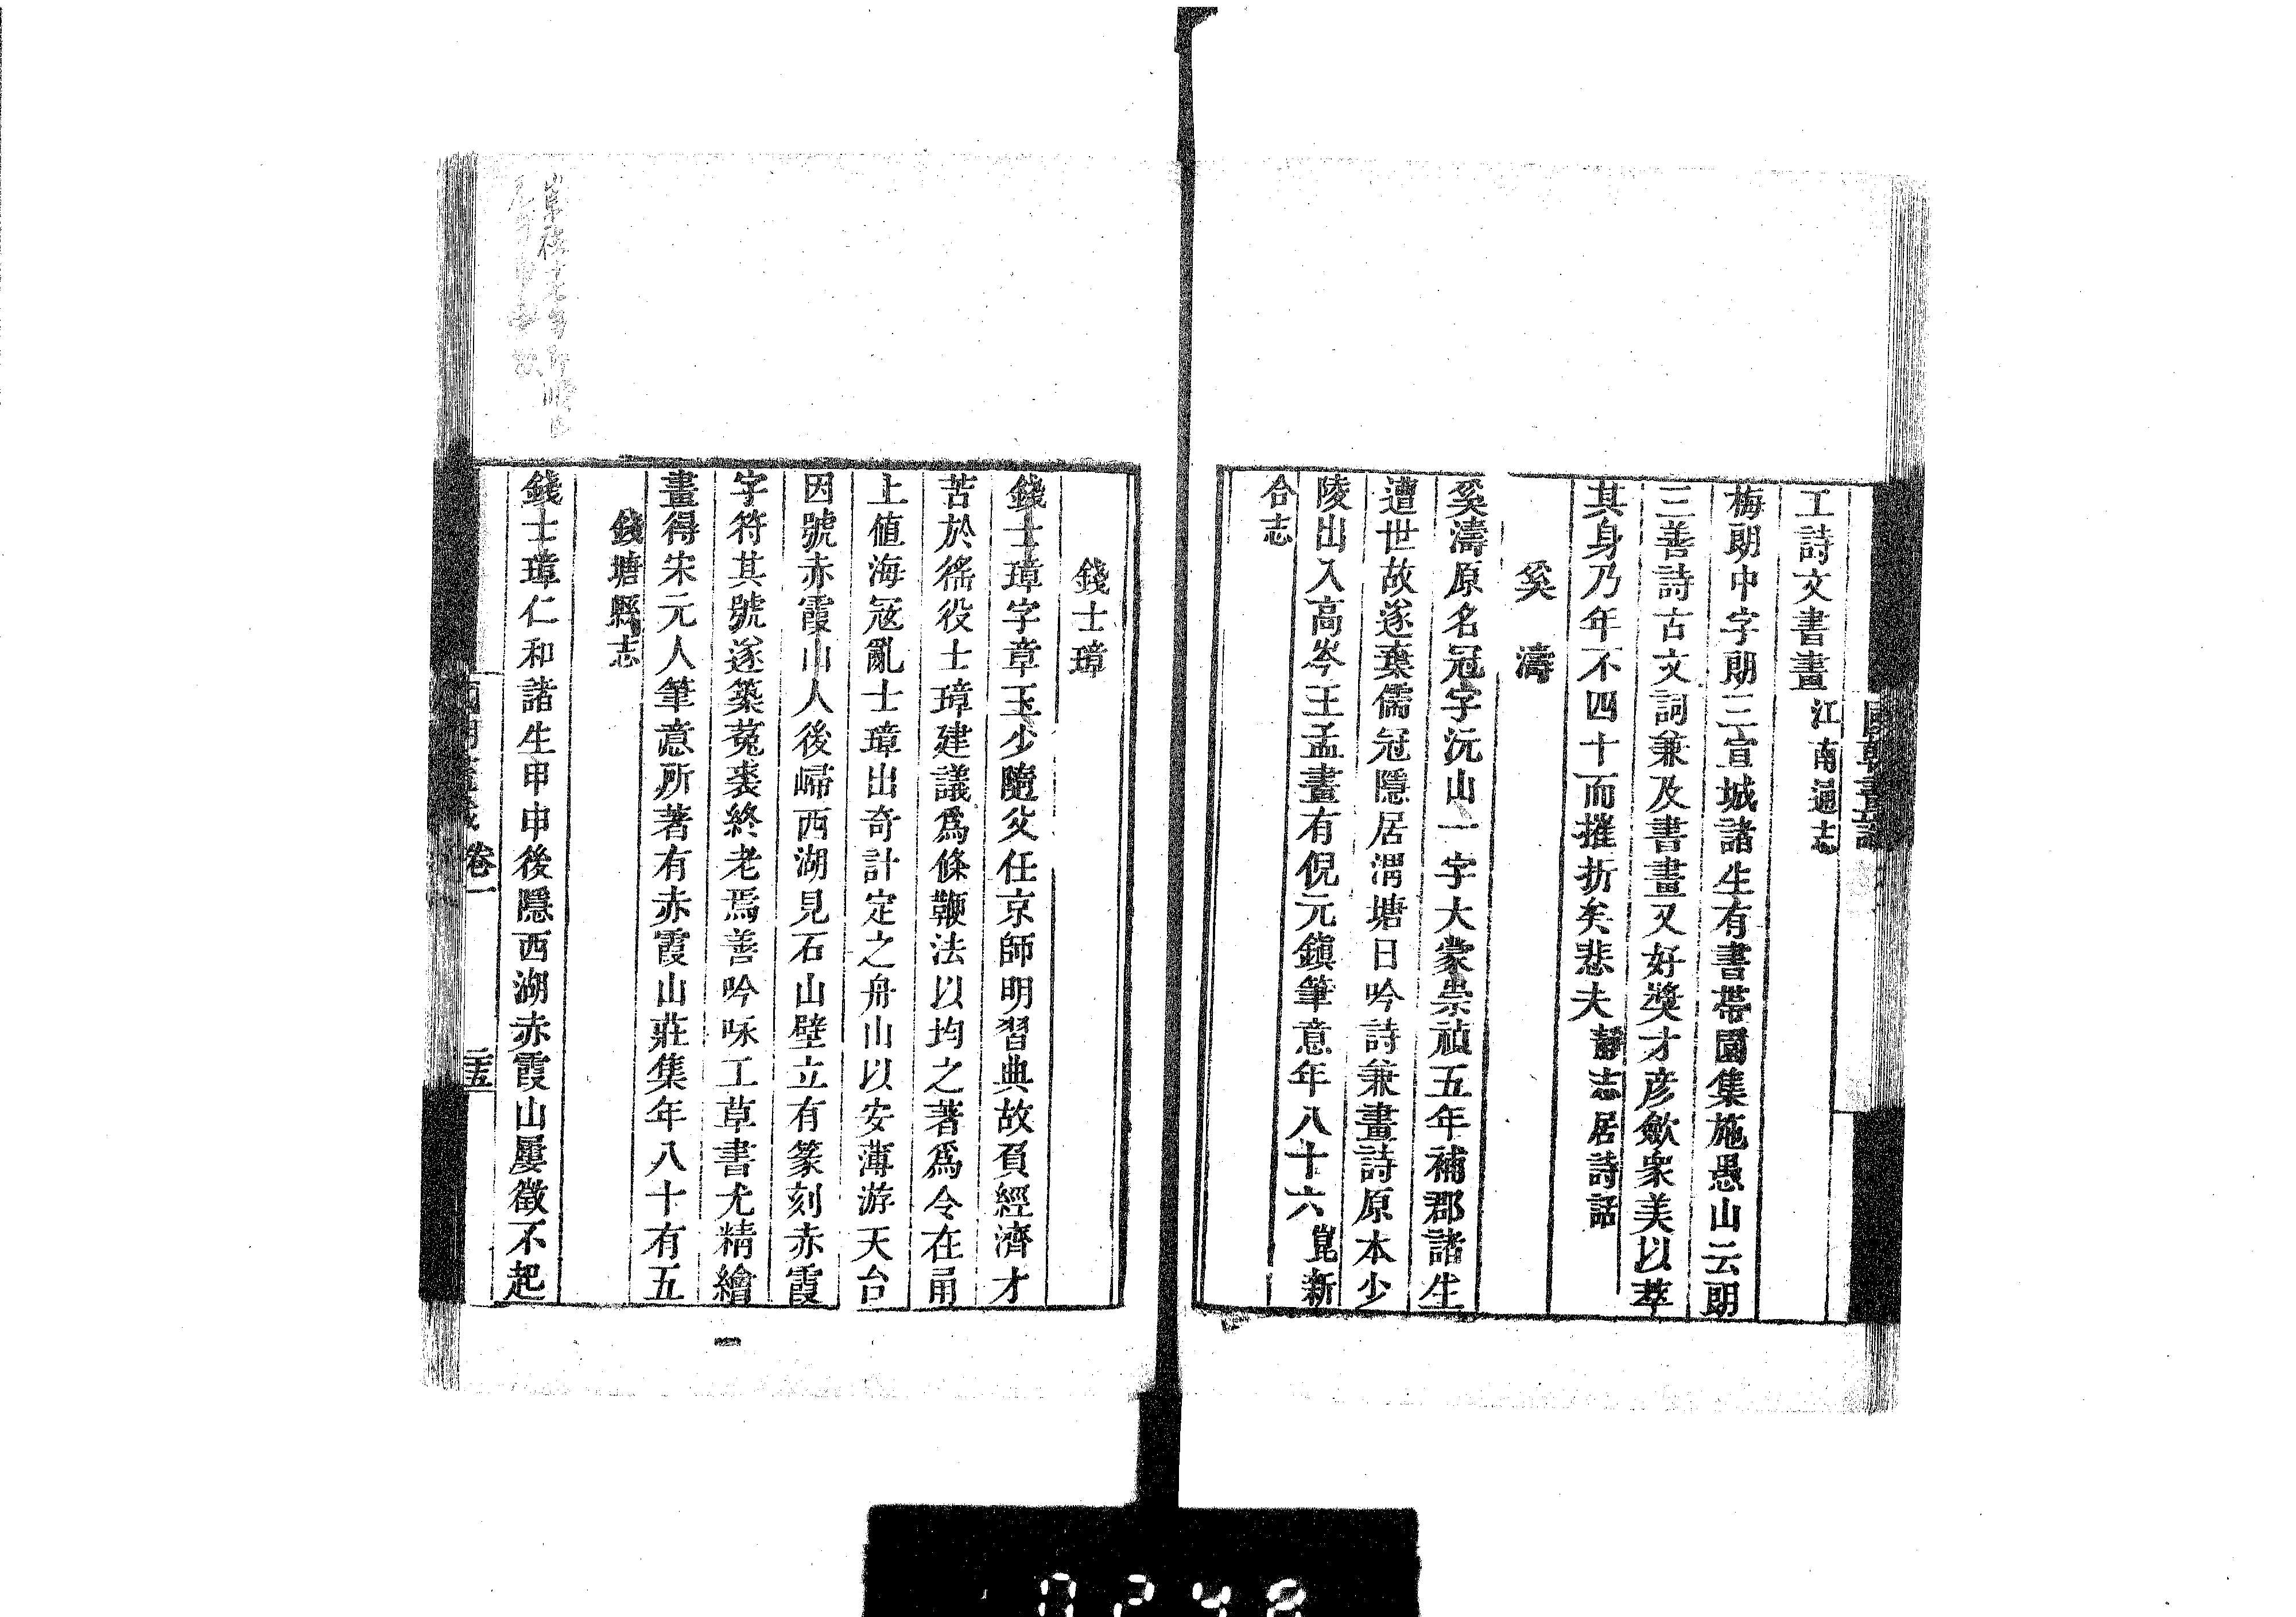 工詩文書畫江南通志
梅朗中字朗三宣城諸生有書帶園集施愚山云朗
三善詩古文詞兼及書畫又好奬才彦歛衆美以萃
其身乃年不四十而摧折矣悲夫靜志居詩話
奚濤
奚濤原名冠字沅山一字大蒙崇禎五年補郡諸生
遭世故遂棄儒冠隱居渭塘日吟詩兼畫詩原本少
陵出入高岑王孟畫有倪元鎭筆意年八十六崑新
合志
錢士璋
錢士璋字章玉少隨父任京師明習典故負經濟才
苦於徭役士璋建議爲條鞭法以均之著爲令在甬
上值海冦亂士璋出奇計定之舟山以安薄游天台
因號赤霞山人後歸西湖見石山壁立有篆刻赤霞
字符其號遂築菟裘終老焉善吟咏工草書尤精繪
畫得宋元人筆意所著有赤霞山莊集年八十有五
錢塘縣志
錢士璋仁和諸生甲申後隱西湖赤霞山屢徵不起
卷一
二十五